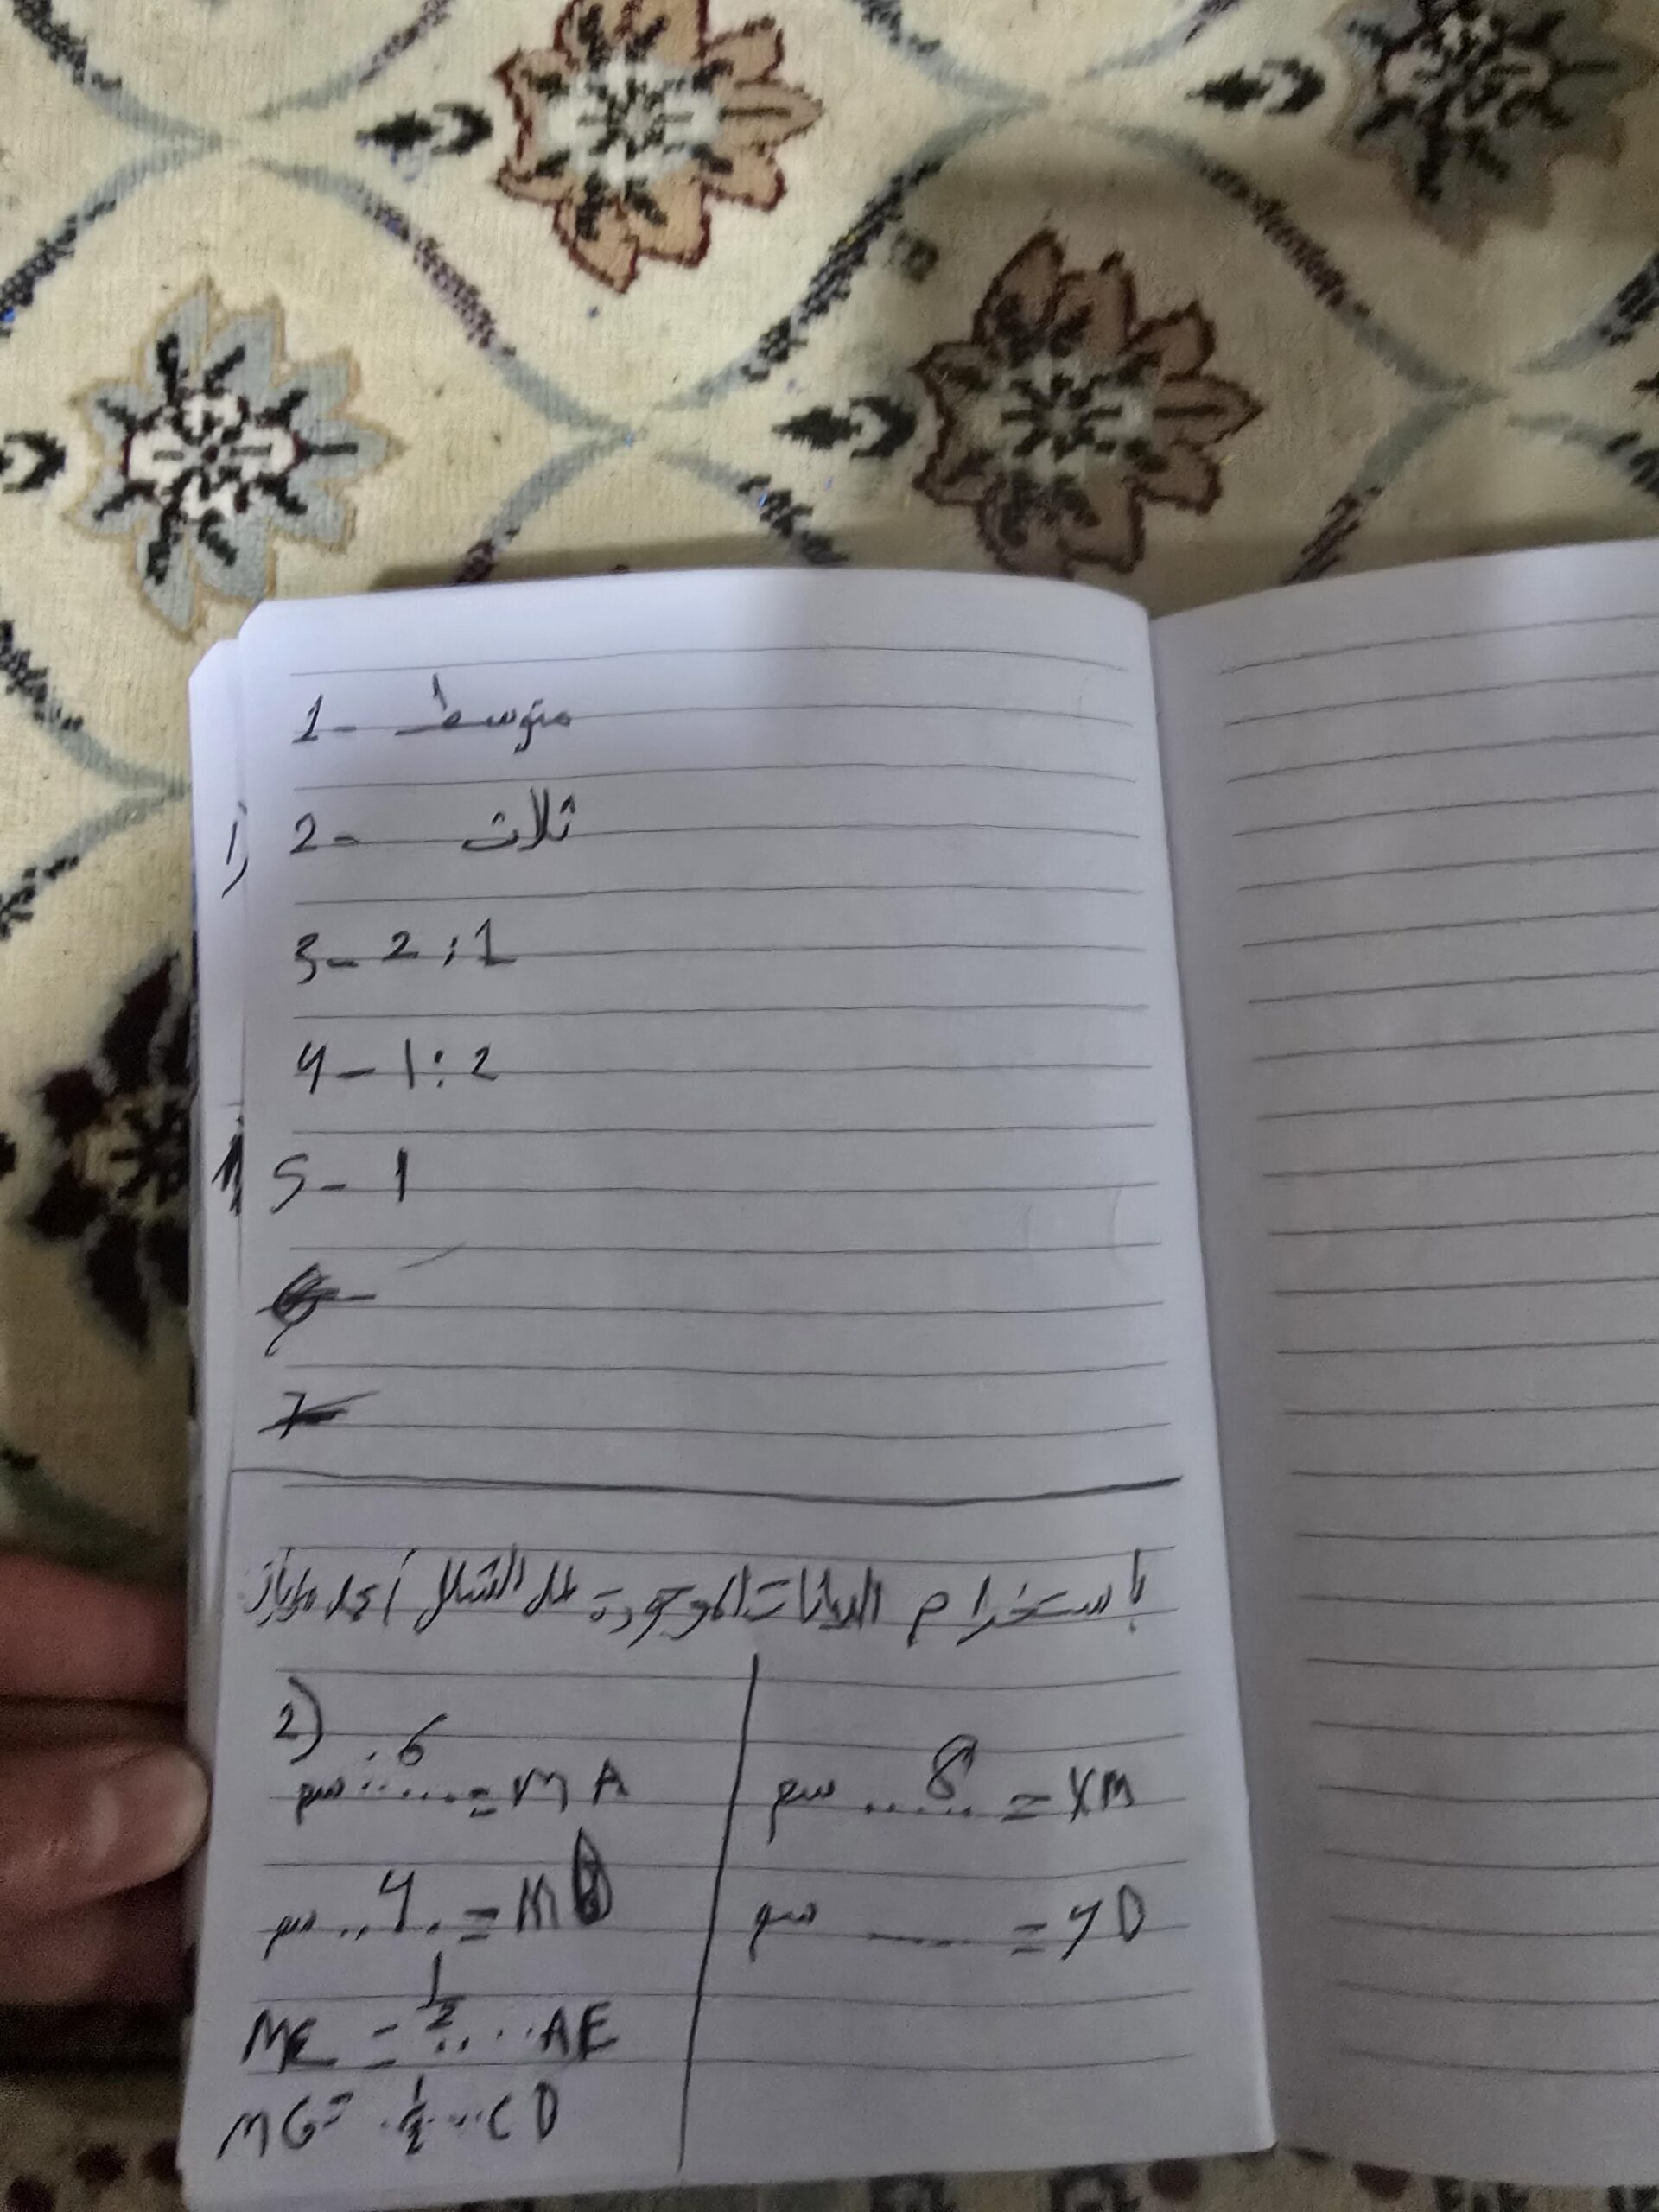 1- متوسط
1) 2- ثلاث
3- 2:1
4- 1:2
5- 1
7-
باستخدام البيانات الموجودة على الشكل أوجد
2)
سم ..6.. = MA
سم ..4.. = M
ME = 1/2 .... AE
MG = .1/2...CD
سم ..8.... = XM
سم ...... = YD